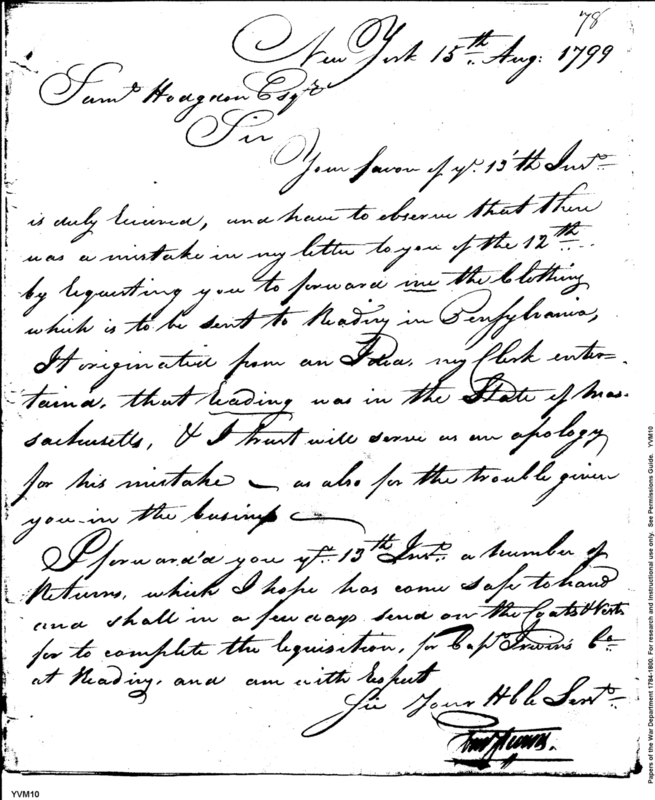 78
New York 15th Aug: 1799
Saml Hodgdon Esqr
Sir
Your favor of ye. 13'th Inst.
is duly received, and have to observe that there
was a mistake in my letter to you of the 12th
by requesting you to forward me the Clothing
which is to be sent to Reading in Pensylvania,
It originated from an Idea, my Clerk enter-
taind, that Reading was in the State of Mas-
sachusetts, & I trust will serve as an apology
for his mistake — as also for the trouble given
you in the business —
I forward'd you ye. 13th Inst. a number of
Returns, which I hope has come safe to hand
and shall in a few days send on the Coats & Vests
for to complete the requisition, for Capt. Irwin's Co.
at Reading, and am with Respect
Sir Your Hble Servt.
YVM10
Papers of the War Department 1784-1800. For research and instructional use only. See Permissions Guide. YVM10